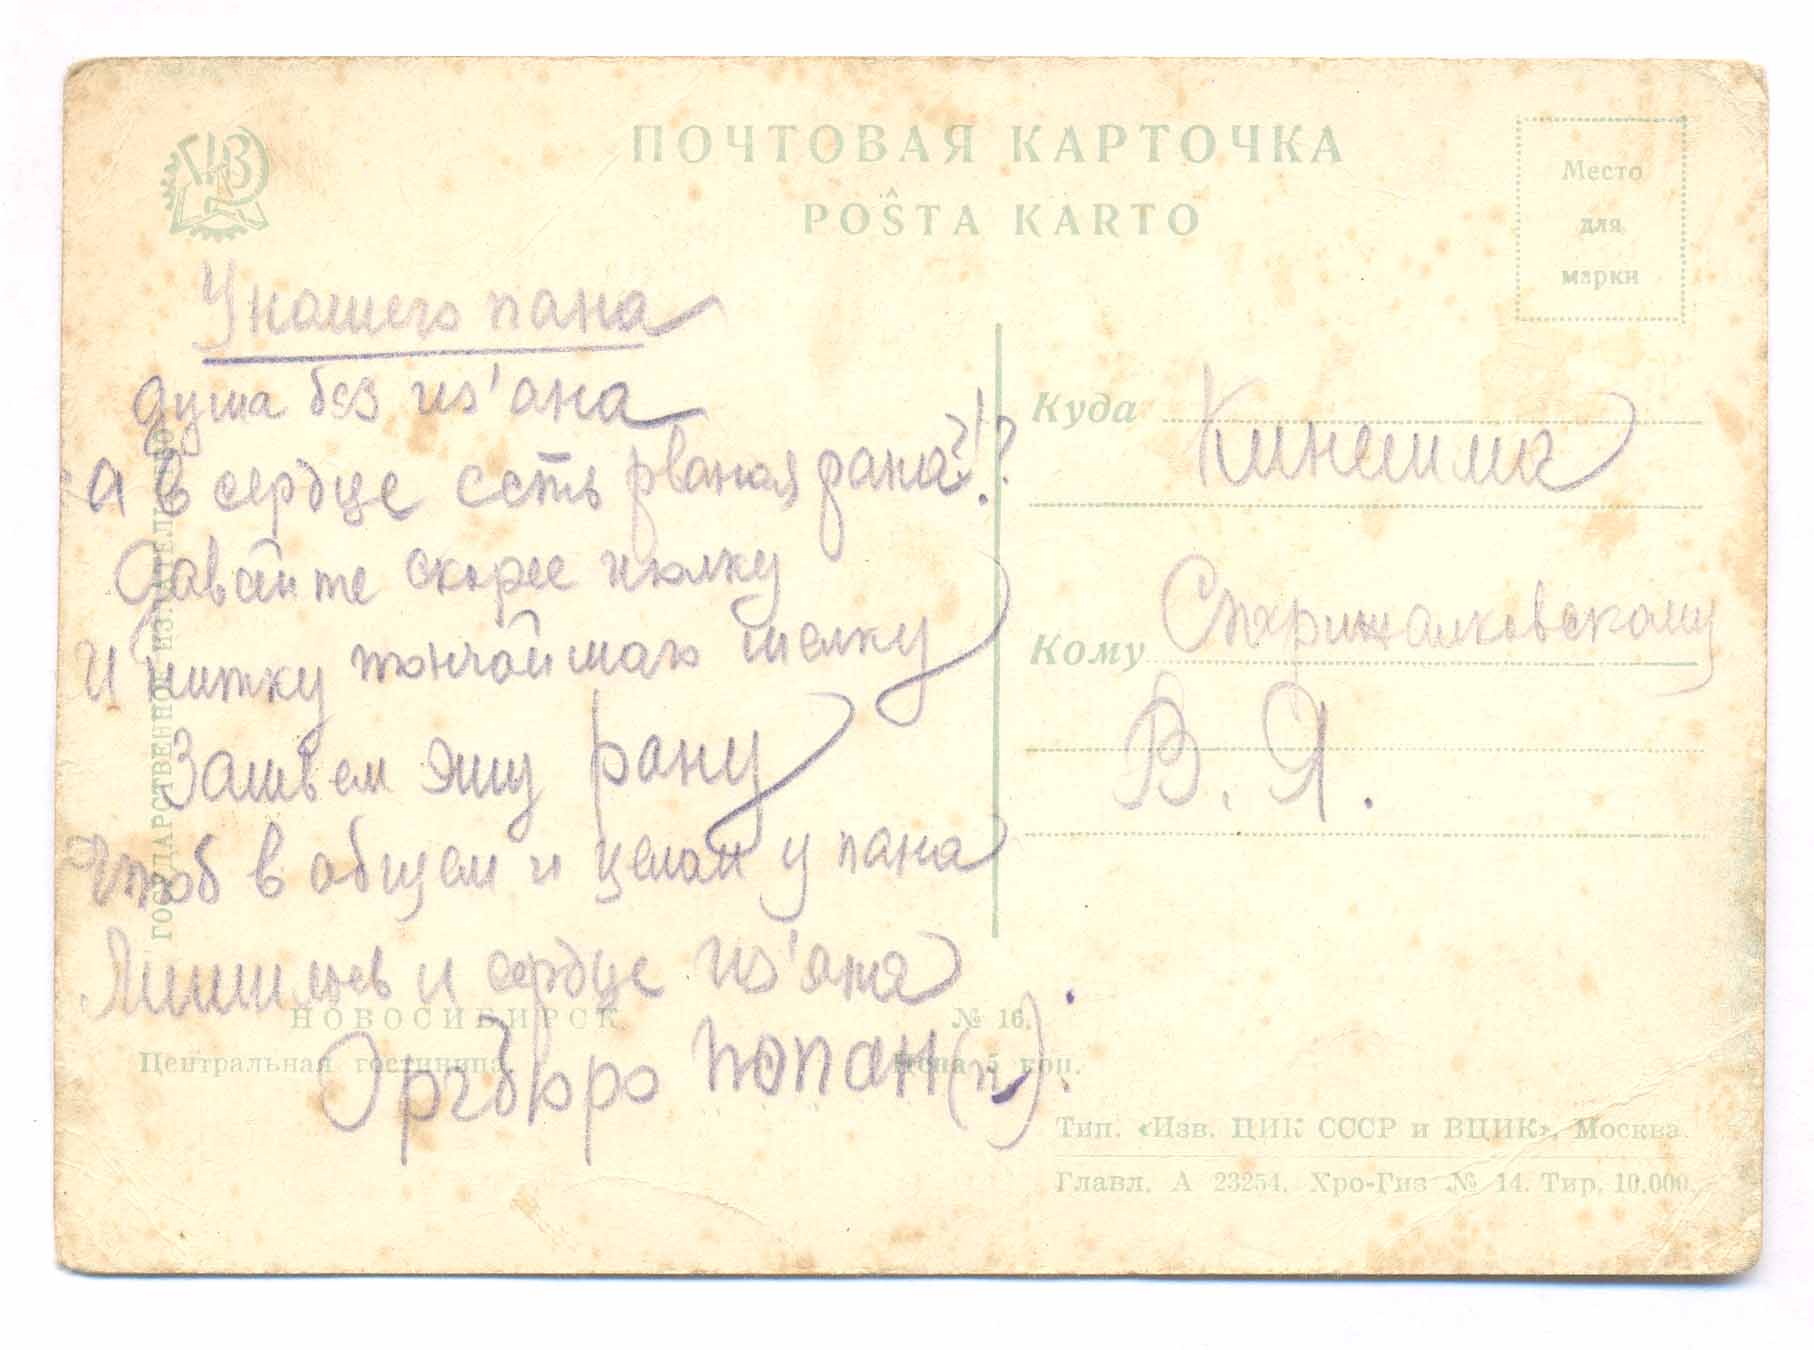 ПОЧТОВАЯ КАРТОЧКА
POŜTA KARTO
Место
для
марки
У нашего пана
душа без из'яна
а в сердце есть рваная рана?!?
Давайте скорее иголку
И нитку тончайшаго шелку
Зашьем эту рану
Чтоб в общем и целом у пана
Лишилось и сердце из'яна
Оргбюро попан(п).
Куда Кинешма
Кому
В. Я.
ГОСУДАРСТВЕННОЕ ИЗДАТЕЛЬСТВО
НОВОСИБИРСК № 16.
Центральная гостиница. Цена 5 коп.
Тип. «Изв. ЦИК СССР и ВЦИК», Москва.
Главл. А 23254. Хро-Гиз № 14. Тир. 10.000.